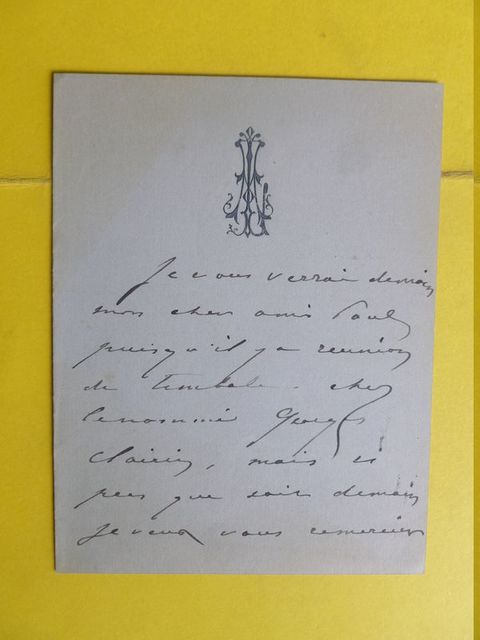 Je vous verrai demain
mon cher ami Paul
puisqu'il y a reunion
de timbale chez
le nommé Georges
Clairin, mais si
peu que soit demain
je veux vous remercier